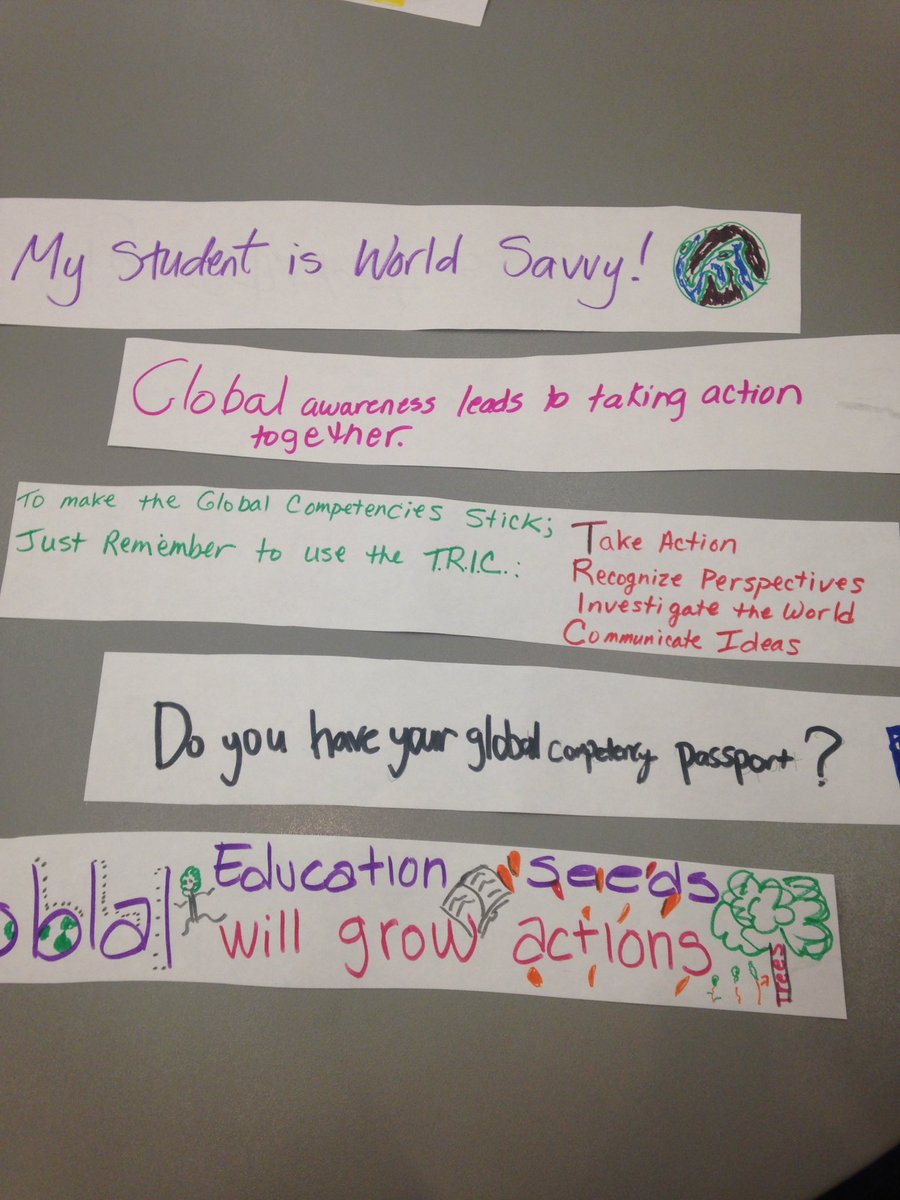 My Student is World Savvy!
Global awareness leads to taking action
together.
To make the Global Competencies Stick;
Just Remember to use the T.R.I.C.:
Take Action
Recognize Perspectives
Investigate the World
Communicate Ideas
Do you have your global competency passport?
oblal Education seeds
will grow actions
trees